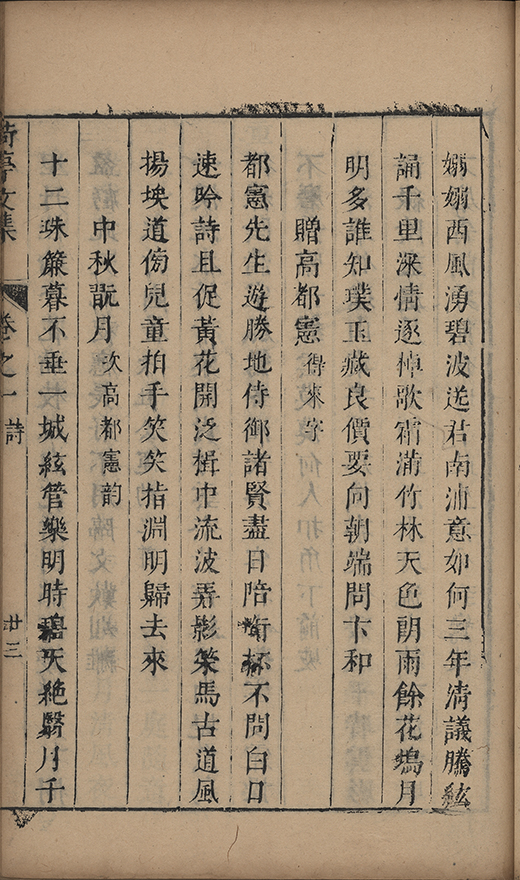 嫋嫋西風湧碧波送君南浦意如何三年清議騰絃
誦千里深情逐棹歌霜滿竹林天色朗雨餘花塢月
明多誰知璞玉藏良價要向朝端問卞和
贈高都憲 得來字
都憲先生遊勝地侍御諸賢盡日陪銜杯不問白日
速吟詩且促黃花開泛楫中流波弄影策馬古道風
揚埃道傍兒童拍手笑笑指淵明歸去來
中秋翫月 次高都憲韵
十二珠簾暮不垂一城絃管樂明時碧天絶翳月千
文集 卷之一 詩 廿三